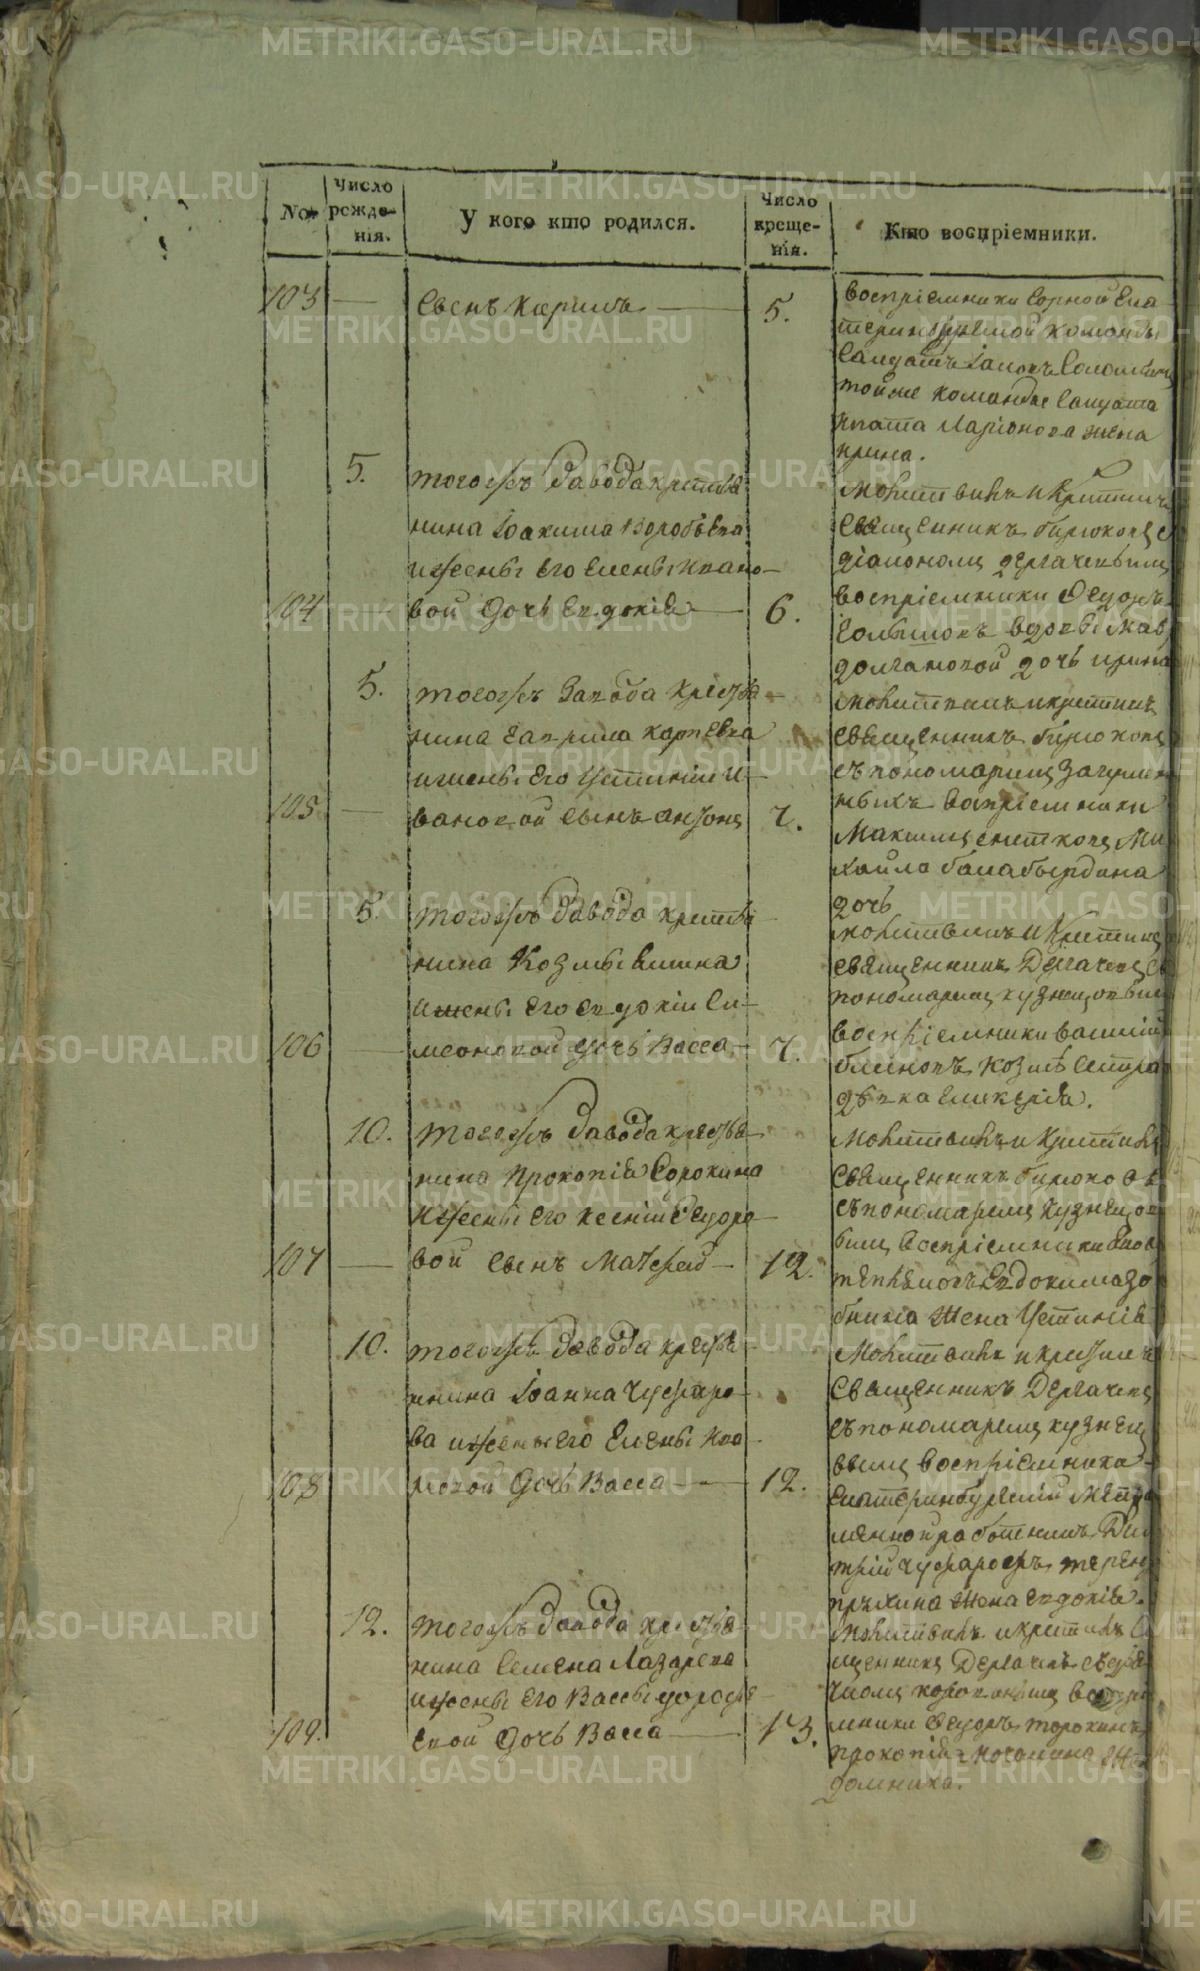 No
Число рожде-нія.
У кого кто родился.
Число креще-нія.
Кто воспріемники.
103
сынъ Кирилъ
5.
воспріемники Горной Ека
теринбургской команды
Салдатъ
тойже команды салдата
Ипата Ларіонова жена
Ирина.
5.
тогожъ завода крестья
нина Іоакима Воробьева
и жены его Елены Ивано-
104
вой дочь Евдокія
6.
Молитвилъ и Крестилъ
священникъ Бирюковъ с
діакономъ Дергачевымъ
воспріемники Ѳедоръ
вдовы Мав
долгановой дочь Ирина
5.
тогожъ Завода крестья-
нина Гаврила Карпева
и жены его Устиніи И-
105
вановой сынъ Антонъ
7.
Молитвилъ и крестилъ
священникъ Бирюковъ
съ пономаремъ Загумен
ныхъ воспріемники
Максимъ Снетковъ Ми
хайла Балабырдина
дочь
5.
тогожъ завода крестья
нина Козмы Блинова
и жены его Евдокіи Си-
106
меоновой дочь Васса
7.
молитвилъ и Крестилъ
священникъ Дергачевъ съ
пономаремъ кузнецовым
воспріемники василій
блиновъ Козмы
дѣвка Гликерія.
10.
тогожъ завода крестья-
нина Прокопія Сорокина
и жены его Ксеніи Ѳедоро-
107
вой сынъ Матѳей
12.
Молитвилъ и Крестилъ
священникъ Бирюковъ
съ пономаремъ кузнецо
вымъ воспріемники
Евдокима
жена Устинія
10.
тогожъ завода крестья-
нина Іоанна Чуфаро-
ва и жены его Елены Ива-
108
новой дочь Васса
12.
Молитвилъ и крестилъ
священникъ Дергачевъ
съ пономаремъ кузнецо
вымъ воспріемника
Екатеринбургскій
работникъ Дми
трій Чуфаровъ
жена евдокія.
12.
тогожъ завода крестья
нина Семена Лазарева
и жены его Вассы дороѳе-
109.
евой дочь Васса
13.
Молитвилъ и крестилъ с
щенникъ Дергачевъ съ дья
чкомъ воспріе
мники Ѳедоръ Торокинъ
прокопія Мочалина же
домника.
METRIKI.GASO-URAL.RU